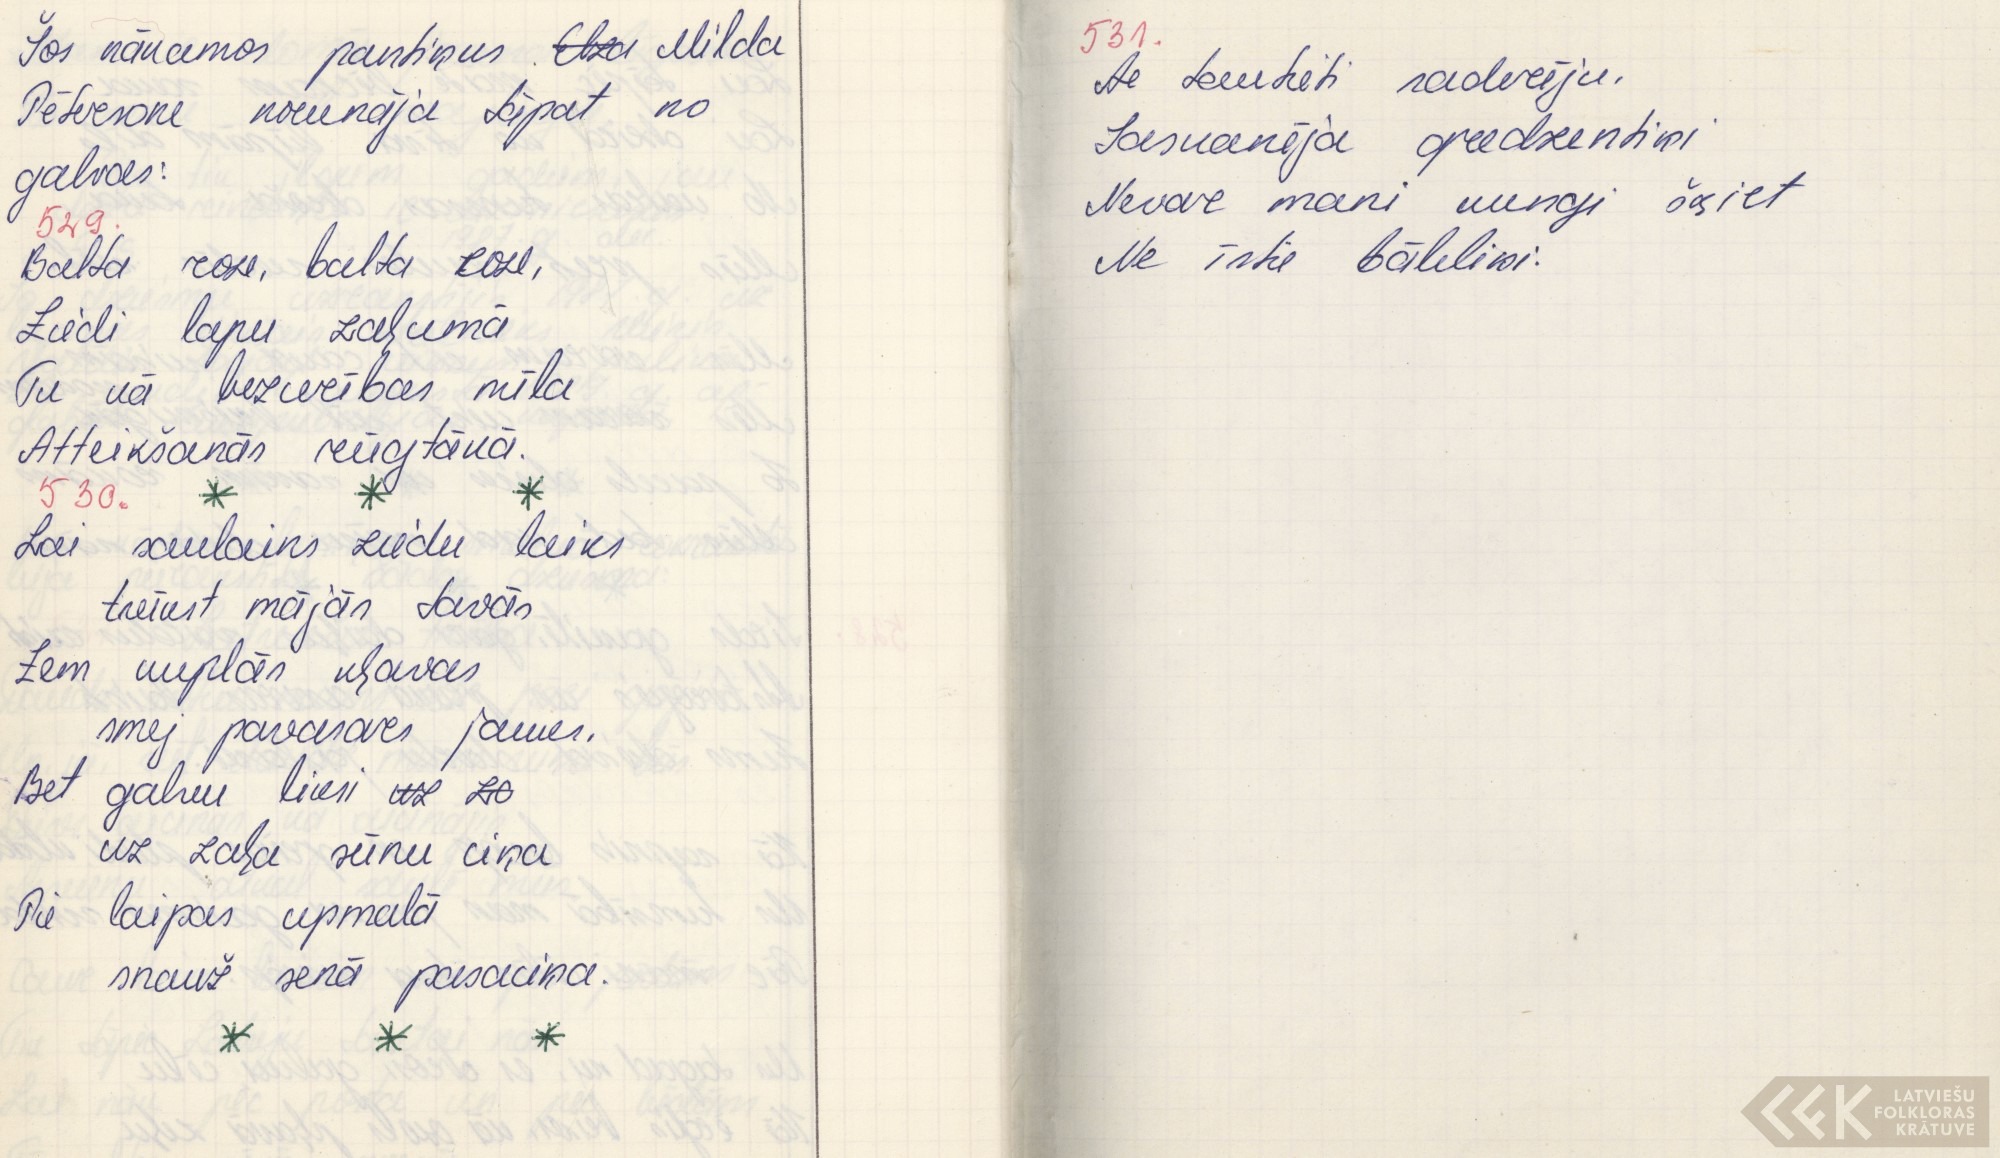 Šos nākamos pantiņus Elza Milda
Pētersone norunāja tāpat no
galvas:
529.
Balta roze, balta roze,
Ziedi lapu zaļumā
Tu kā bezcerības mīla
Atteikšanās rūgtākā.
530.
* * *
Lai saulains ziedu laiks
trīkst mājās tavās
Zem kuplās kļavas
smej pavasares jaukes.
Bet galvu liksi uz za
uz zaļa sūnu ciņa
Pie laipas upmalā
snauž senā pasaciņa.
* * *
531.
Ar tautieti saderēju,
Saskanēja gredzentiņi
Nevar mani kungi šķiet
Ne īstie bāleliņi.
LATVIEŠU
FOLKLORAS
KRĀTUVE